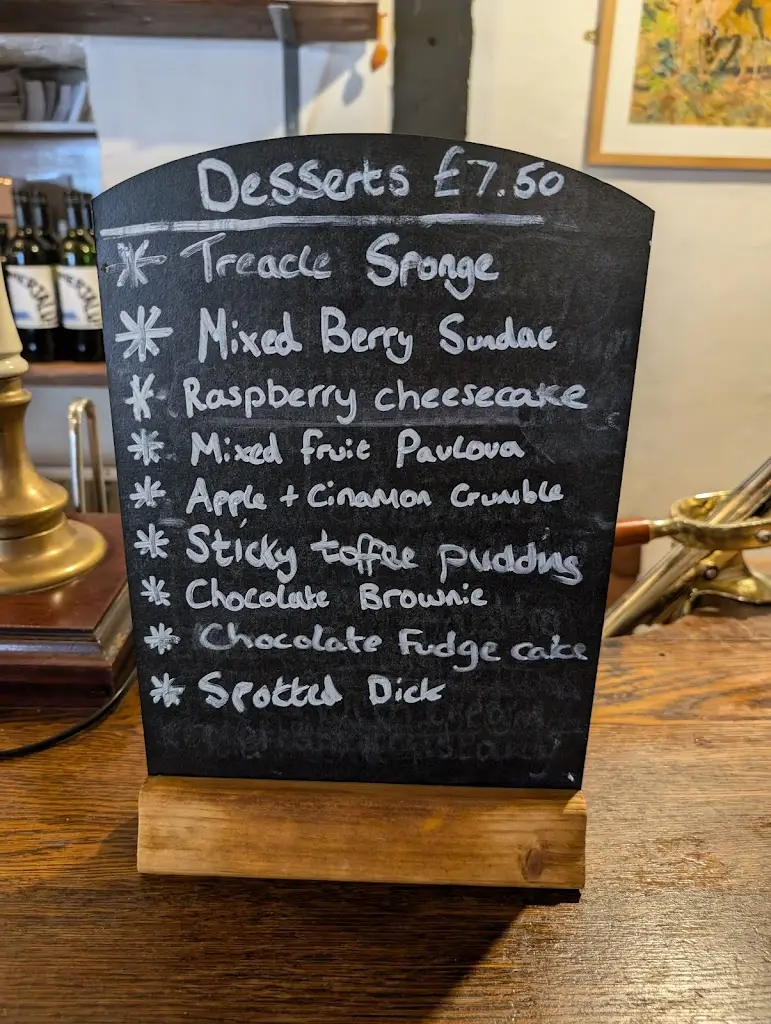 Desserts £7.50
* Treacle Sponge
* Mixed Berry Sundae
* Raspberry cheesecake
* Mixed fruit Pavlova
* Apple + Cinamon Crumble
* Sticky toffee pudding
* Chocolate Brownie
* Chocolate Fudge cake
* Spotted Dick